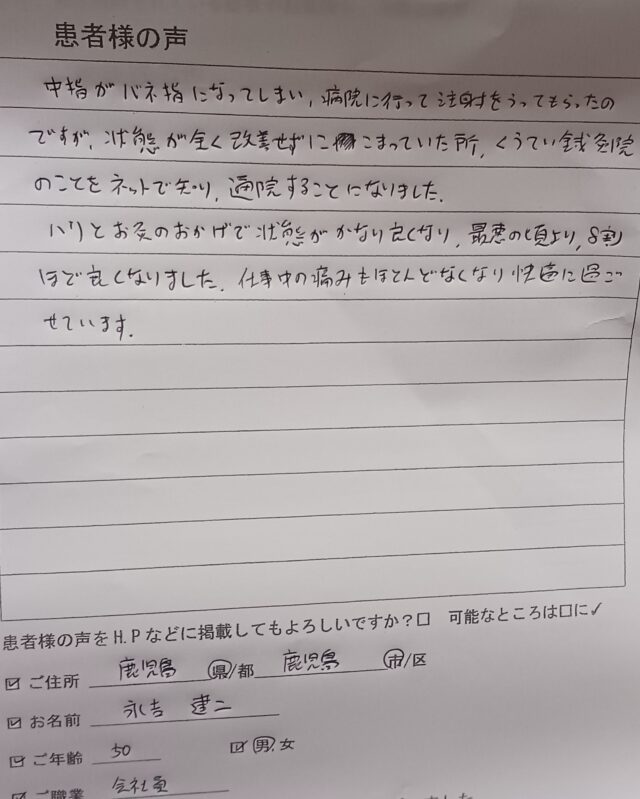 患者様の声
中指がバネ指になってしまい、病院に行って注射をうってもらったの
ですが、状態が全く改善せずに こまっていた所、くうてい鍼灸院
のことをネットで知り、通院することになりました。
ハリとお灸のおかげで状態がかなり良くなり、最悪の頃より、8割
ほど良くなりました。仕事中の痛みもほとんどなくなり快適に過ご
せています。
患者様の声をH.Pなどに掲載してもよろしいですか?□ 可能なところは□に✓
☑ ご住所 鹿児島 県/都 鹿児島 市/区
☑ お名前 永吉 建二
☑ ご年齢 50 ☑ 男.女
☑ ご職業 会社員